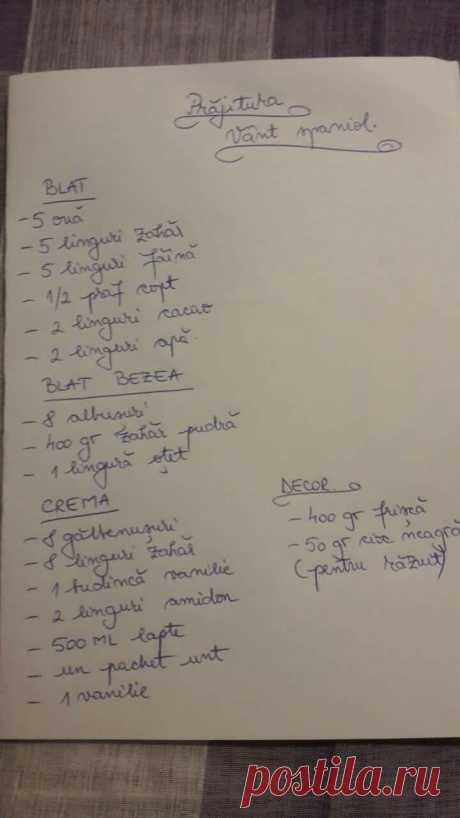 Prăjitura
Vânt spaniol.
BLAT
- 5 ouă
- 5 linguri zahăr
- 5 linguri făină
- 1/2 praf copt
- 2 linguri cacao
- 2 linguri apă.
BLAT BEZEA
- 8 albușuri
- 400 gr zahăr pudră
- 1 lingură oțet
CREMA
- 8 gălbenușuri
- 8 linguri zahăr
- 1 budincă vanilie
- 2 linguri amidon
- 500 ML lapte
- un pachet unt
- 1 vanilie
DECOR
- 400 gr frișcă
- 50 gr cioc neagră
(pentru răzuit)
postila.ru